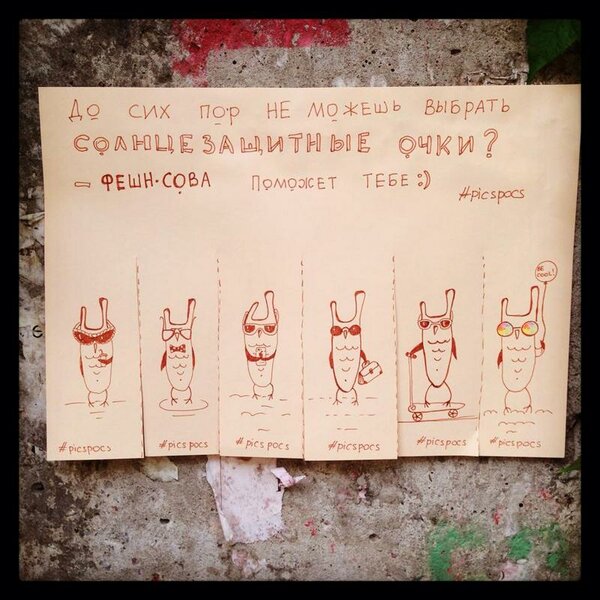 ДО СИХ ПОР НЕ МОЖЕШЬ ВЫБРАТЬ
СОЛНЦЕЗАЩИТНЫЕ ОЧКИ?
— ФЕШН·СОВА ПОМОЖЕТ ТЕБЕ:)
#picspocs
BE
COOL!
#picspocs
#picspocs
#picspocs
#picspocs
#picspocs
#picspocs